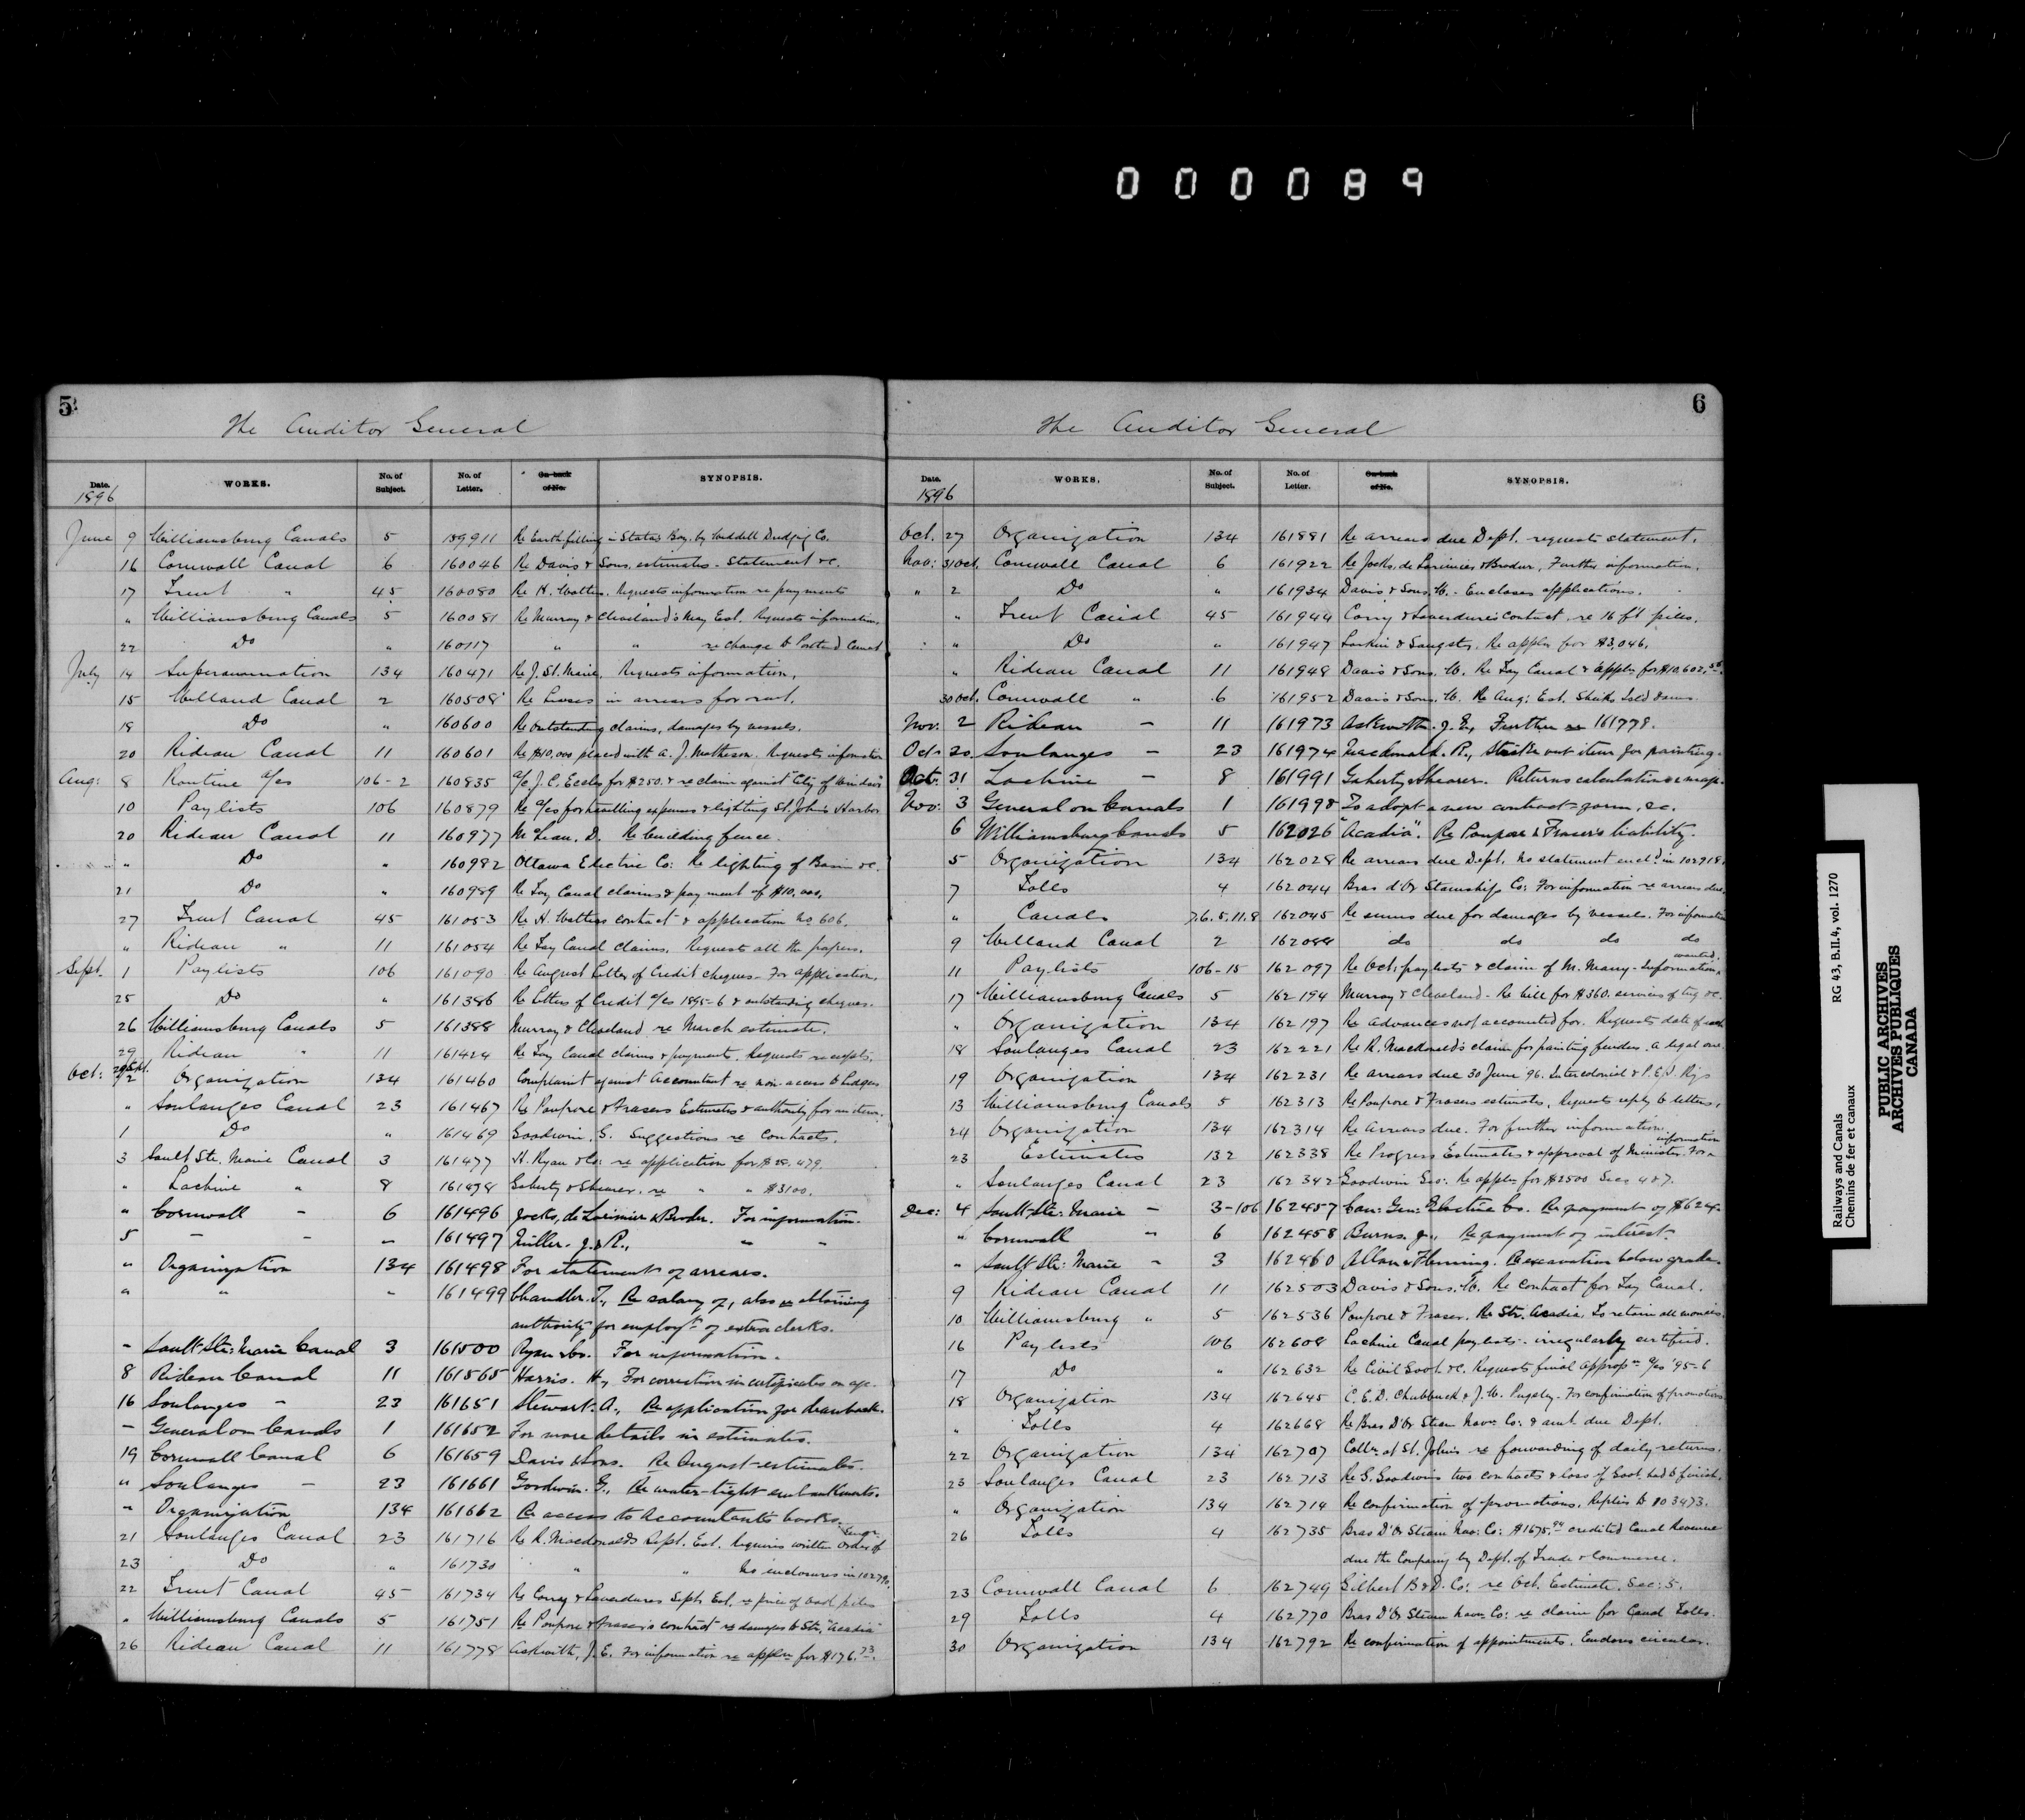 000089
5
The Auditor General
Date. WORKS. No. of Subject. No. of Letter. On back of No. SYNOPSIS.
1896
June 9 Williamsburg Canals 5 159911 Re Earth filling in States Bay, by Weddell Dredging Co.
16 Cornwall Canal 6 160046 Re Davis & Sons, estimates - Statement &c.
17 Trent " 45 160080 Re H. Walters. Requests information re payments
" Williamsburg Canals 5 160081 Re Murray & Cleveland's May Est. Requests information.
22 Do " 160117 " " re change to Portland Cement
July 14 Superannuation 134 160471 Re J. St. Marie, Requests information.
15 Welland Canal 2 160508 Re Leases in arrears for rent.
18 Do " 160600 Re Outstanding claims, damages by vessels.
20 Rideau Canal 11 160601 Re $10,000 placed with A. J. Matheson. Requests information
Aug: 8 Routine a/cs 106-2 160835 a/c J. C. Eccles for $250. & re claim against "City of Windsor"
10 Paylists 106 160879 Re a/cs for travelling expenses & lighting St. Johns Harbor
20 Rideau Canal 11 160977 McLean, D. Re building fence.
" Do " 160982 Ottawa Electric Co: Re lighting of Basin &c.
21 Do " 160989 Re Tay Canal claims & payment of $10,000.
27 Trent Canal 45 161053 Re H. Walters contract & application No 606.
" Rideau " 11 161054 Re Tay Canal claims. Requests all the papers.
Sept. 1 Paylists 106 161090 Re August Letter of Credit cheques - For application.
25 Do " 161386 Re Letters of Credit a/cs 1895-6 & outstanding cheques.
26 Williamsburg Canals 5 161388 Murray & Cleveland re March estimate.
29 Rideau " 11 161424 Re Tay Canal claims & payments. Requests receipts.
Oct: 29 Sept. 2 Organization 134 161460 Complaint against Accountant re non-access to ledgers
" Soulanges Canal 23 161467 Re Poupore & Frasers Estimates & authority for an item.
1 Do " 161469 Goodwin, G. Suggestions re Contracts.
3 Sault Ste. Marie Canal 3 161477 H. Ryan & Co: re application for $28,479.
" Lachine " 8 161478 Gaherty & Shearer. re " " $3100.
" Cornwall - 6 161496 Jocks, de Lorimier & Broder. For information.
5 - - - 161497 Miller. J. & R., " "
" Organization 134 161498 For statement of arrears.
" " - 161499 Chandler. T., Re salary of, also re obtaining
authority for employt of extra clerks.
- Sault Ste: Marie Canal 3 161500 Ryan & Co. For information.
8 Rideau Canal 11 161565 Harris. H., For correction in certificates on a/c.
16 Soulanges - 23 161651 Stewart. A., Re application for drawback.
- General on Canals 1 161652 For more details in estimates.
19 Cornwall Canal 6 161659 Davis & Sons. Re August estimates.
" Soulanges - 23 161661 Goodwin. G., Re water-tight embankments.
" Organization 134 161662 Re access to Accountants books.
21 Soulanges Canal 23 161716 Re R. Macdonalds Sept. Est. Requires written order of Engr.
23 Do " 161730 " " No enclosures in 102790.
22 Trent Canal 45 161734 Re Corry & Laverdures Sept. Est. re price of oak piles
" Williamsburg Canals 5 161751 Re Poupore & Fraser's contract re damages to Str. "Acadia"
26 Rideau Canal 11 161778 Askwith, J. E. For information re appln for $176.73.
6
The Auditor General
Date. WORKS. No. of Subject. No. of Letter. On back of No. SYNOPSIS.
1896
Oct. 27 Organization 134 161881 Re arrears due Dept. requests statement.
Nov: 31 Oct. Cornwall Canal 6 161922 Re Jocks, de Lorimier & Brodeur, Further information.
" 2 Do " 161934 Davis & Sons. W. - Encloses applications.
" Trent Canal 45 161944 Corry & Laverdure's contract, re 16 ft piles.
" Do " 161947 Larkin & Sangster. Re appln for $3046.
" Rideau Canal 11 161948 Davis & Sons, W. Re Tay Canal & appln for $10,602.56.
30 Oct. Cornwall " 6 161952 Davis & Sons, W. Re Aug: Est. Sheiks Isld dams
Nov. 2 Rideau - 11 161973 Askwith. J. E., Further re 161778.
Oct 20. Soulanges - 23 161974 Macdonald. R., Strike out item for painting.
Oct. 31 Lachine - 8 161991 Gaherty & Shearer. Returns calculations & map.
Nov: 3 General on Canals 1 161998 To adopt a new contract form, &c.
6 Williamsburg Canals 5 162026 "Acadia". Re Poupore & Fraser's liability.
5 Organization 134 162028 Re arrears due Dept. No statement encld in 102918.
7 Tolls 4 162044 Bras d'Or Steamship Co: For information re arrears due.
" Canals 7.6.5.11.8 162045 Re sums due for damages by vessels. For information
9 Welland Canal 2 162088 do do do do
11 Paylists 106-15 162097 Re Oct: paylists & claim of M. Many - Information wanted.
17 Williamsburg Canals 5 162194 Murray & Cleveland - Re bill for $360. services of tug &c.
" Organization 134 162197 Re advances not accounted for. Requests date of each
18 Soulanges Canal 23 162221 Re R. Macdonald's claim for painting fenders. A legal one.
19 Organization 134 162231 Re arrears due 30 June '96. Intercolonial & P.E.I. Rys
13 Williamsburg Canals 5 162313 Re Poupore & Frasers estimates. Requests reply to letters.
24 Organization 134 162314 Re Arrears due. For further information.
23 Estimates 132 162338 Re Progress Estimates & approval of Minister. For information
" Soulanges Canal 23 162342 Goodwin Geo: Re appln for $2500 Secs 4 & 7.
Dec: 4 Sault Ste: Marie - 3-106 162457 Can: Gen: Electric Co. Re payment of $624.
" Cornwall " 6 162458 Burns. J., Re payment of interest.
" Sault Ste: Marie - 3 162460 Allan & Fleming. Re excavation below grade.
9 Rideau Canal 11 162503 Davis & Sons. W. Re contract for Tay Canal.
10 Williamsburg " 5 162536 Poupore & Fraser. Re Str. Acadia. To retain all monies.
16 Paylists 106 162608 Lachine Canal paylists - irregularly certified.
17 Do " 162632 Re Civil Govt. &c. Requests final appropn a/cs '95-6
18 Organization 134 162645 C. E. D. Chubbuck & J. W. Pugsley - For confirmation of promotions
" Tolls 4 162668 Re Bras D'Or Steam Navn Co: & amt. due Dept.
22 Organization 134 162707 Collr at St. Johns re forwarding of daily returns.
23 Soulanges Canal 23 162713 Re G. Goodwins two contracts & loss if Govt. had to finish.
" Organization 134 162714 Re confirmation of promotions. Replies to 103473.
26 Tolls 4 162735 Bras D'Or Steam Nav: Co: $1675.94 credited Canal Revenue
due the Company by Dept. of Trade & Commerce.
23 Cornwall Canal 6 162749 Gilbert B & D. Co: re Oct. Estimate. Sec: 5.
29 Tolls 4 162770 Bras D'Or Steam Navn Co: re claim for Canal Tolls.
30 Organization 134 162792 Re confirmation of appointments. Encloses circular.
RG 43, B.II.4, vol. 1270
Railways and Canals
Chemins de fer et canaux
PUBLIC ARCHIVES
ARCHIVES PUBLIQUES
CANADA